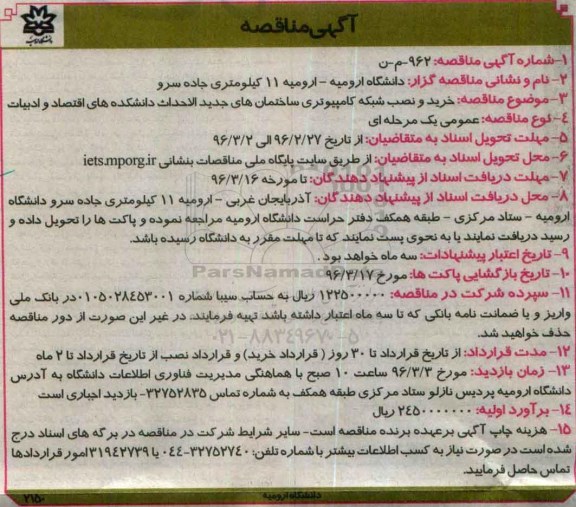 آگهی مناقصه
۱-شماره آگهی مناقصه: ۹۶۲-م-ن
۲- نام و نشانی مناقصه گزار: دانشگاه ارومیه - ارومیه ۱۱ کیلومتری جاده سرو
۳-موضوع مناقصه: خرید و نصب شبکه کامپیوتری ساختمان های جدید الاحداث دانشکده های اقتصاد و ادبیات
۴- نوع مناقصه: عمومی یک مرحله ای
۵- مهلت تحویل اسناد به متقاضیان: از تاریخ ۹۶/۲/۲۷ الی ۹۶/۳/۲
۶- محل تحویل اسناد به متقاضیان: از طریق سایت پایگاه ملی مناقصات بنشانی iets.mporg.ir
۷-مهلت دریافت اسناد از پیشنهاد دهندگان: تا مورخه ۹۶/۳/۱۶
۸- محل دریافت اسناد از پیشنهاد دهندگان: آذربایجان غربی - ارومیه ۱۱ کیلومتری جاده سرو دانشگاه
ارومیه - ستاد مرکزی - طبقه همکف دفتر حراست دانشگاه ارومیه مراجعه نموده و پاکت ها را تحویل داده و
رسید دریافت نمایند یا به نحوی پست نمایند که تا مهلت مقرر به دانشگاه رسیده باشد.
۹- تاریخ اعتبار پیشنهادات: سه ماه خواهد بود.
۱۰- تاریخ بازگشایی پاکت ها: مورخ ۹۶/۳/۱۷
ParsNamadData
۱۱- سپرده شرکت در مناقصه: ۱۲۲۵۰۰۰۰۰ ریال به حساب سیبا شماره ۰۱۰۵۰۲۸۴۵۳۰۰۱ در بانک ملی
واریز و یا ضمانت نامه بانکی که تا سه ماه اعتبار داشته باشد تهیه فرمایند. در غیر این صورت از دور مناقصه
حذف خواهید شد.
۰۲۱-۸۸۳۴۹۶۷۰-۵
۱۲- مدت قرارداد: از تاریخ قرارداد تا ۳۰ روز ( قرارداد خرید) و قرارداد نصب از تاریخ قرارداد تا ۲ ماه
۱۳- زمان بازدید: مورخ ۹۶/۳/۳ ساعت ۱۰ صبح با هماهنگی مدیریت فناوری اطلاعات دانشگاه به آدرس
دانشگاه ارومیه پردیس نازلو ستاد مرکزی طبقه همکف به شماره تماس ۳۲۷۵۲۸۳۵- بازدید اجباری است
۱۴- برآورد اولیه: ۲۴۵۰۰۰۰۰۰۰ ریال
۱۵- هزینه چاپ آگهی برعهده برنده مناقصه است- سایر شرایط شرکت در مناقصه در برگه های اسناد درج
شده است در صورت نیاز به کسب اطلاعات بیشتر با شماره تلفن: ۳۲۷۵۲۷۴۰-۰۴۴ یا ۳۱۹۴۲۷۳۹ امور قراردادها
تماس حاصل فرمایید.
دانشگاه ارومیه
۲۱۵۰